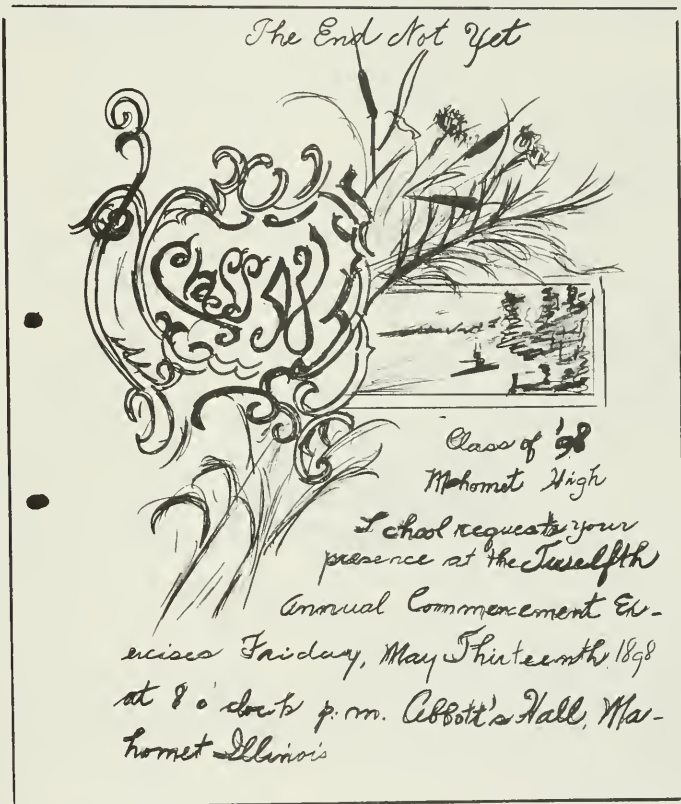 The End Not Yet
Class of
Class of '98
Mahomet High
School requests your
presence at the Twelfth
Annual Commencement Ex-
ercises Friday, May Thirteenth 1898
at 8 o'clock p.m. Abbott's Hall, Ma-
homet Illinois